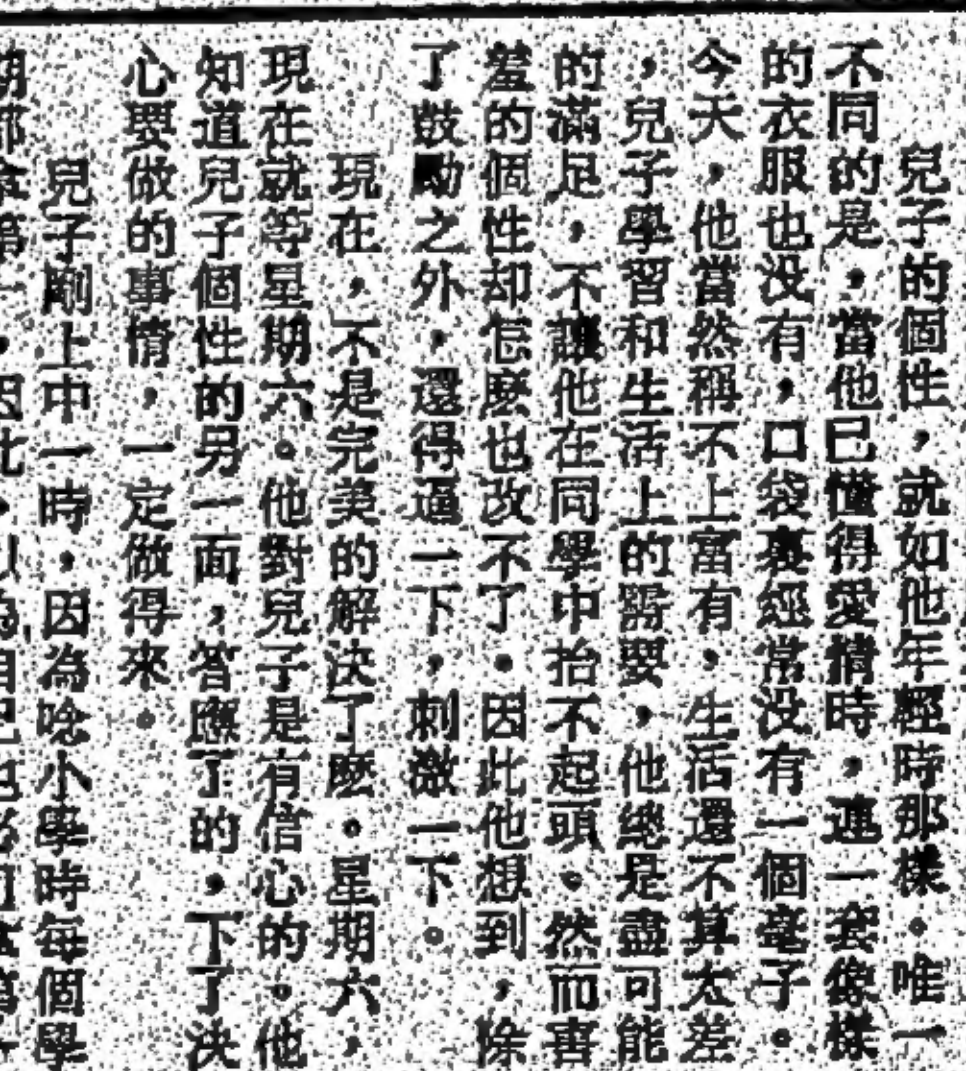 兒子的個性，就如他年輕時那樣。唯一
不同的是，當他已懂得愛情時，連一套像樣
的衣服也没有，口袋裏經常没有一個毫子。
今天，他當然稱不上富有，生活還不算太差
，兒子學習和生活上的需要，他總是盡可能
的滿足，不讓他在同學中抬不起頭。然而害
羞的個性却怎麽也改不了。因此他想到，除
了鼓勵之外，還得逼一下，刺激一下。
現在，不是完美的解決了麽。星期六，
現在就等星期六。他對兒子是有信心的。他
知道兒子個性的另一面，答應了的，下了決
心要做的事情，一定做得來。
兒子剛上中一時，因為唸小學時每個學